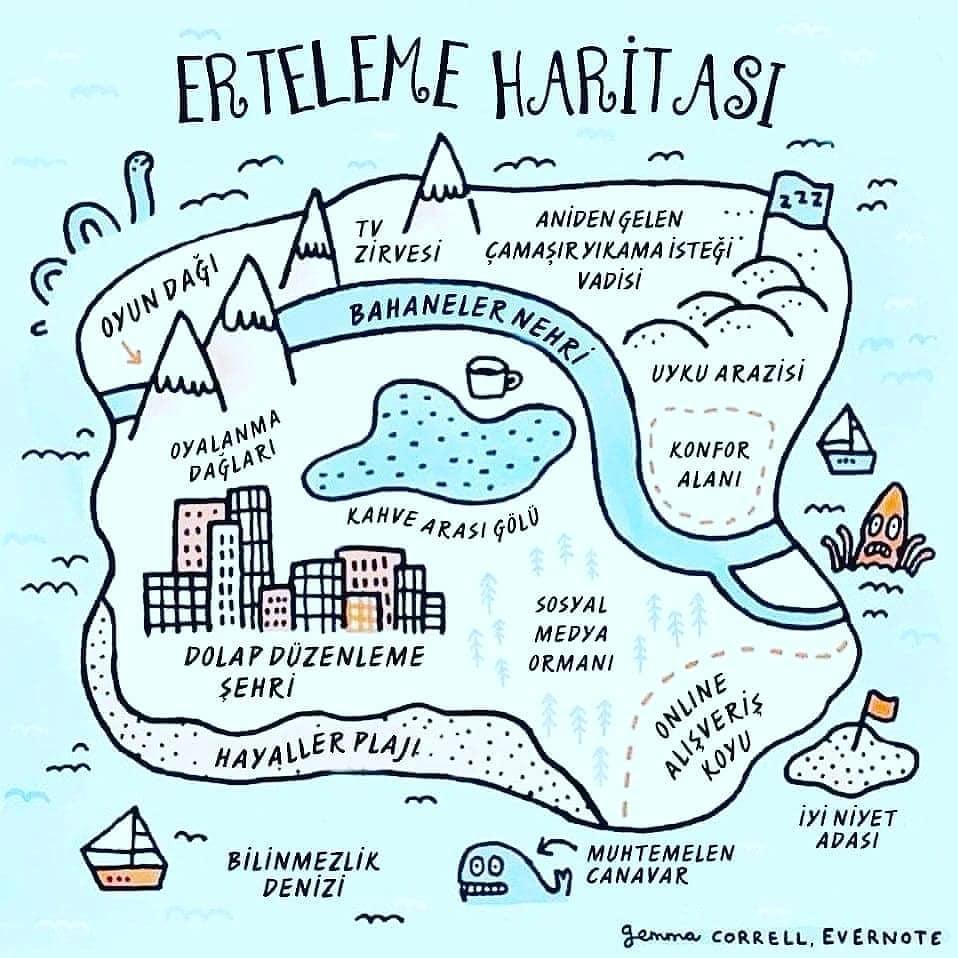 ERTELEME HARİTASI
OYUN DAĞI
TV
ZİRVESİ
ANİDEN GELEN
ÇAMAŞIR YIKAMA İSTEĞİ
VADİSİ
ZZZ
BAHANELER NEHRİ
UYKU ARAZİSİ
KONFOR
ALANI
OYALANMA
DAĞLARI
KAHVE ARASI GÖLÜ
SOSYAL
MEDYA
ORMANI
DOLAP DÜZENLEME
ŞEHRİ
ONLINE
ALIŞVERİŞ
KOYU
HAYALLER PLAJI
İYİ NİYET
ADASI
BİLİNMEZLİK
DENİZİ
MUHTEMELEN
CANAVAR
gemma CORRELL, EVERNOTE